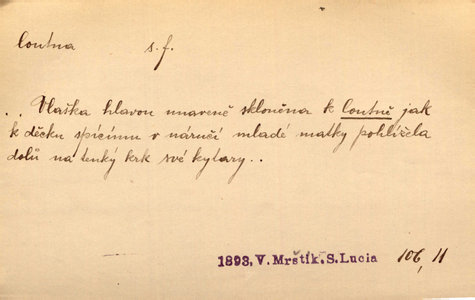 loutna s. f.
.. Vlaška hlavou unaveně skloněna k loutně jak
k děcku spícímu v náručí mladé matky pohlížela
dolů na tenký krk své kytary..
1893, V. Mrštík, S. Lucia 106, 11